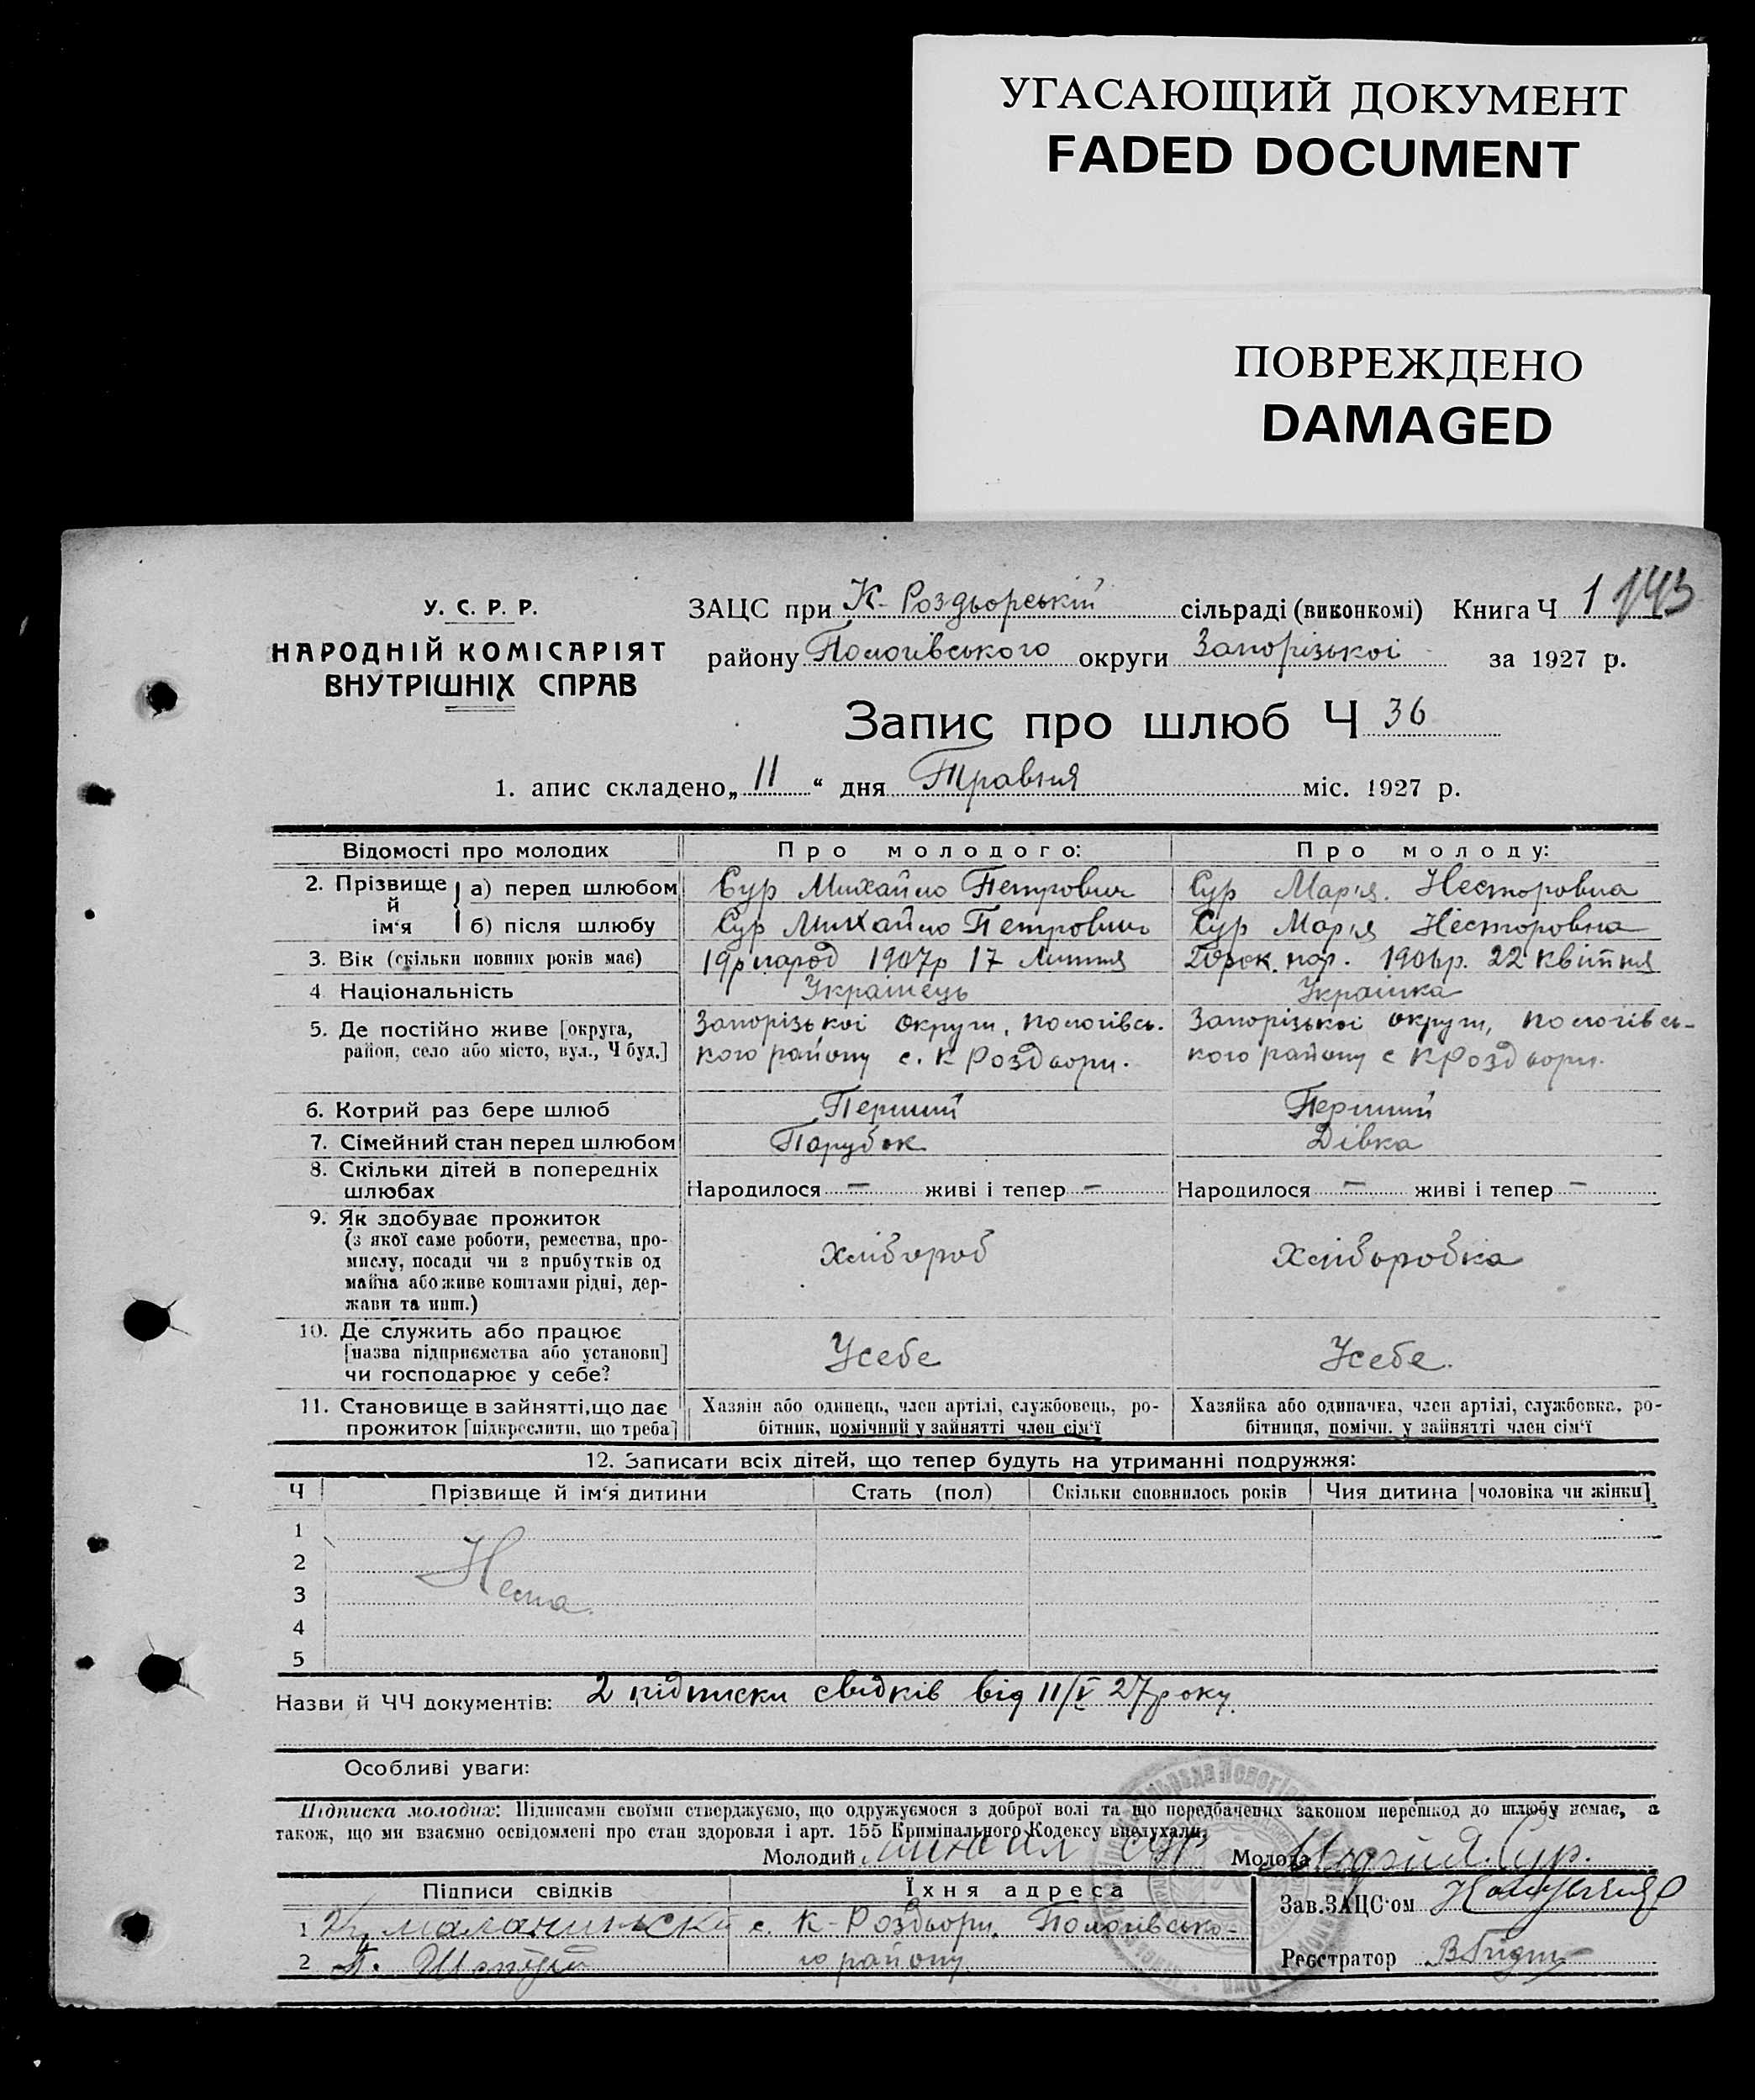 УГАСАЮЩИЙ ДОКУМЕНТ
FADED DOCUMENT
ПОВРЕЖДЕНО
DAMAGED
У. С. Р. Р.
НАРОДНІЙ КОМІСАРІЯТ
ВНУТРІШНІХ СПРАВ
ЗАЦС при К-Роздьорській сільраді (виконкомі) Книга Ч 1 143
району Пологівського округи Запорізької за 1927 р.
Запис про шлюб Ч 36
1. апис складено „ 11 “ дня Травня міс. 1927 р.
Відомості про молодих Про молодого: Про молоду:
2. Прізвище й ім‘я а) перед шлюбом Сур Михайло Петрович Сур Мар'я. Несторовна
б) після шлюбу Сур Михайло Петрович Сур Мар'я Несторовна
3. Вік (скільки повних років має) 19р народ 1907р 17 Липня 20рок. нар. 1906р. 22 Квітня
4 Національність Українець Українка
5. Де постійно живе [округа, Запорізької Округи, Пологівсь- Запорізької округи, Пологівсь-
район, село або місто, вул., Ч буд.] кого району с. К Роздьори. кого району с К Роздьори.
6. Котрий раз бере шлюб Перший Перший
7. Сімейний стан перед шлюбом Парубок Дівка
8. Скільки дітей в попередніх
шлюбах Народилося — живі і тепер — Народилося — живі і тепер —
9. Як здобуває прожиток
(з якої саме роботи, ремества, про-
мислу, посади чи з прибутків од Хлібороб Хліборобка
майна або живе коштами рідні, дер-
жави та инш.)
10. Де служить або працює
[назва підприємства або установи] Усебе Усебе.
чи господарює у себе?
11. Становище в зайнятті, що дає Хазяїн або одинець, член артілі, службовець, ро- Хазяйка або одиначка, член артілі, службовка, ро-
прожиток [підкреслити, що треба] бітник, помічний у зайнятті член сім‘ї бітниця, помічн. у зайнятті член сім‘ї
12. Записати всіх дітей, що тепер будуть на утриманні подружжя:
Ч Прізвище й ім‘я дитини Стать (пол) Скільки сповнилось років Чия дитина [чоловіка чи жінки]
1
2
3 Нема.
4
5
Назви й ЧЧ документів: 2 підписки свідків від 11/V 27 року.
Особливі уваги:
Підписка молодих: Підписами своїми стверджуємо, що одружуємося з доброї волі та що передбачених законом перешкод до шлюбу немає, а
також, що ми взаємно освідомлені про стан здоровля і арт. 155 Кримінального Кодексу вислухали.
Молодий Михаил Сур Молода Сур.
Підписи свідків Їхня адреса Зав. ЗАЦС‘ом
1 с. К-Роздьори. Пологівсько-
2 го району Реєстратор